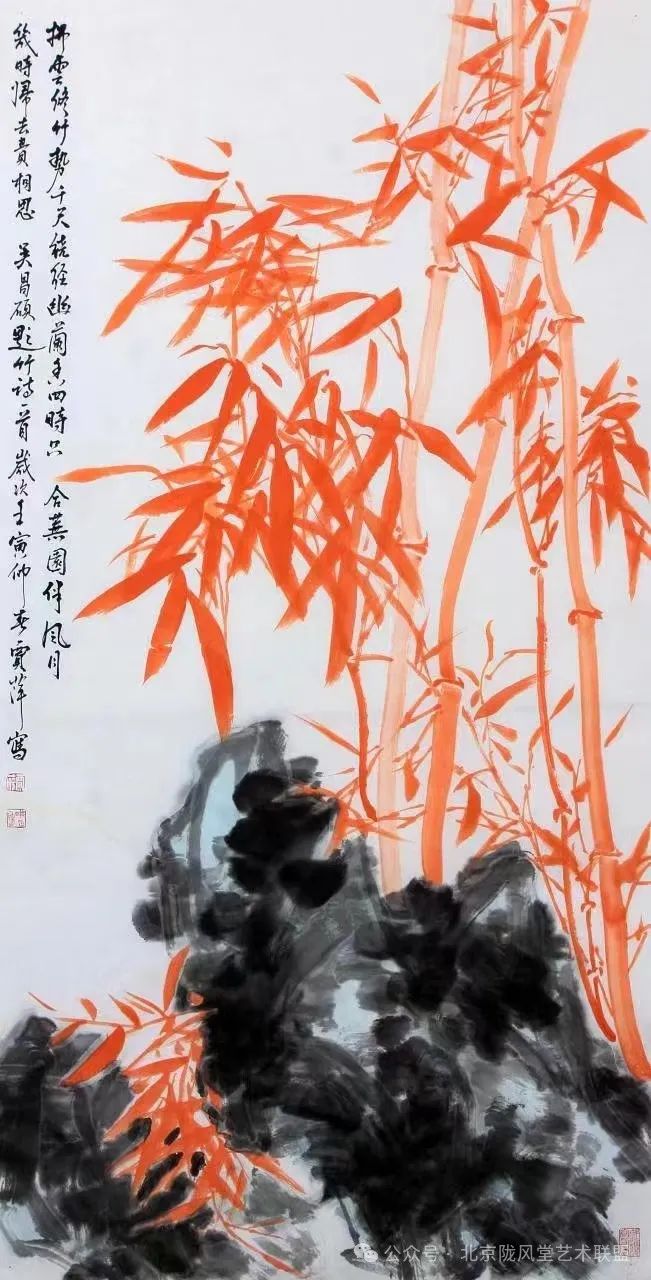 拂雲修竹勢千尺繞徑幽蘭香四時只合蕪園伴風月
幾時歸去貴相思 吴昌碩題竹詩一首歲次壬寅仲春賈萍寫
公众号·北京陇风堂艺术联盟